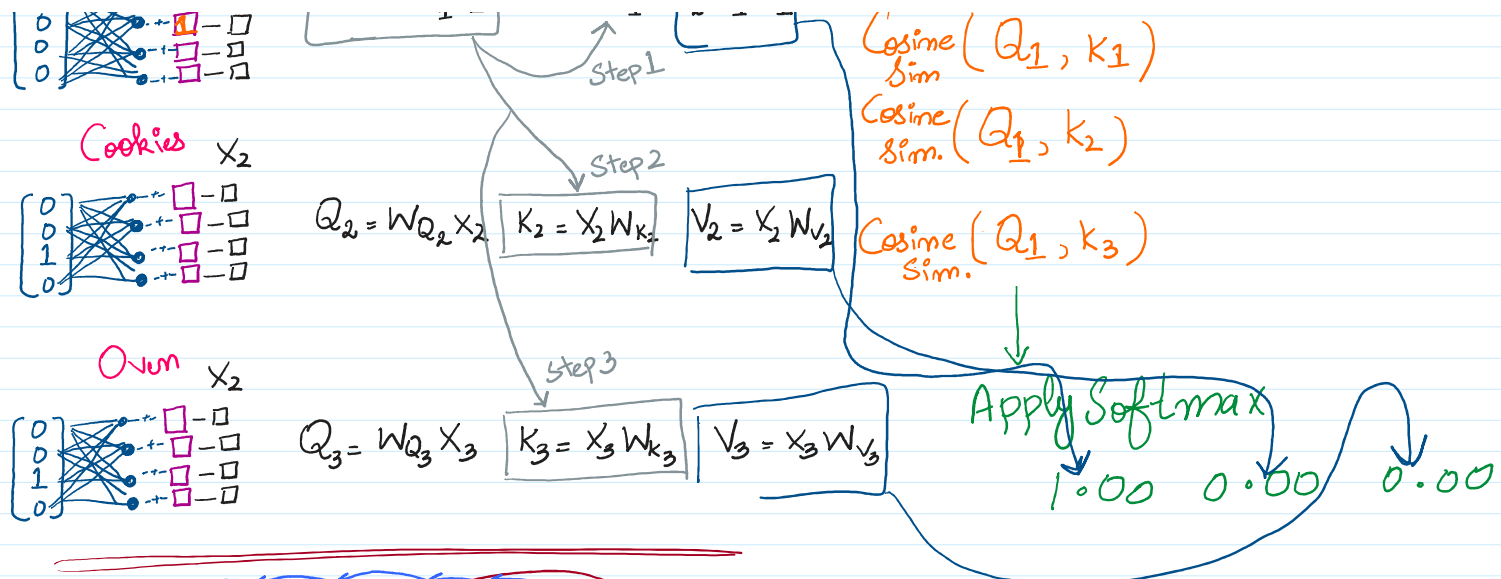 0
0
0
1
Step1
Cosine Sim (Q1, K1)
Cosine sim. (Q1, K2)
Cookies X2
Step2
0
0
1
0
Q2 = WQ2 X2
K2 = X2 WK2
V2 = X2 WV2
Cosine Sim. (Q1, K3)
Oven X2
Step3
0
0
1
0
Q3 = WQ3 X3
K3 = X3 WK3
V3 = X3 WV3
Apply Softmax
1.00 0.00 0.00